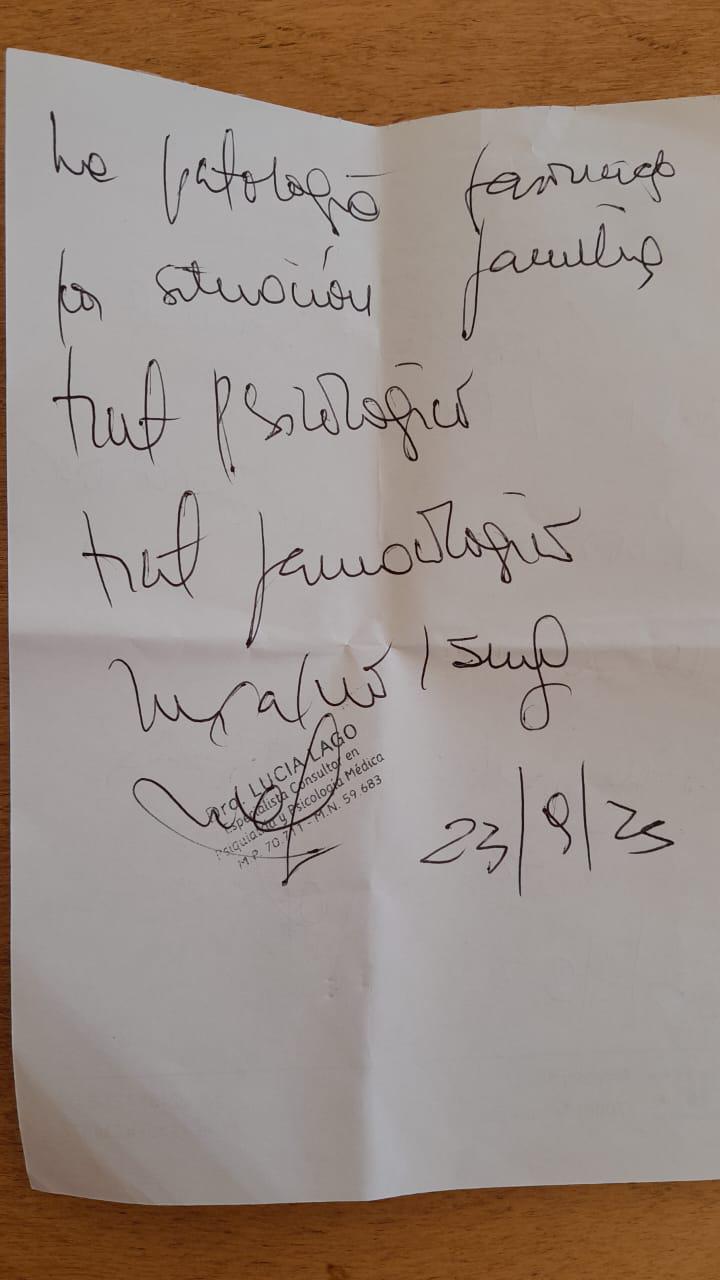 La patología
por situación familia
trat psicológico
trat farmacológico
/ 5mg
Dra. LUCIA LAGO
Especialista Consultor en
Psiquiatría y Psicología Médica
M.P. 70.711 - M.N. 59.683
23/9/25